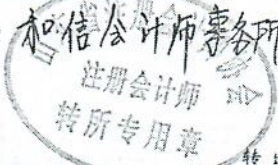 和信会计师事务所
注册会计师
转所专用章